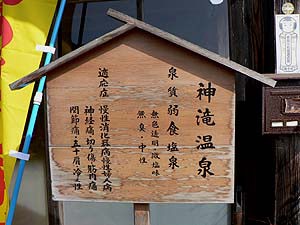 神滝温泉
泉質 弱食塩泉
無色透明・微塩味
無臭・中性
適応症 慢性消化器病 慢性婦人病
神経痛 切り傷 筋肉痛
関節痛・五十肩 冷え性